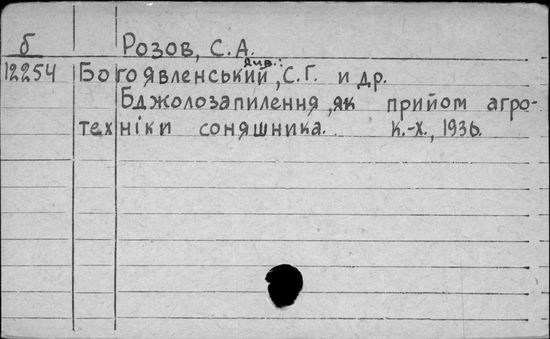 б Розов, С.А.
див.:
12254 Богоявленський, С.Г. и др.
Бджолозапилення, як прийом агро-
техніки соняшника. К.-Х., 1936.